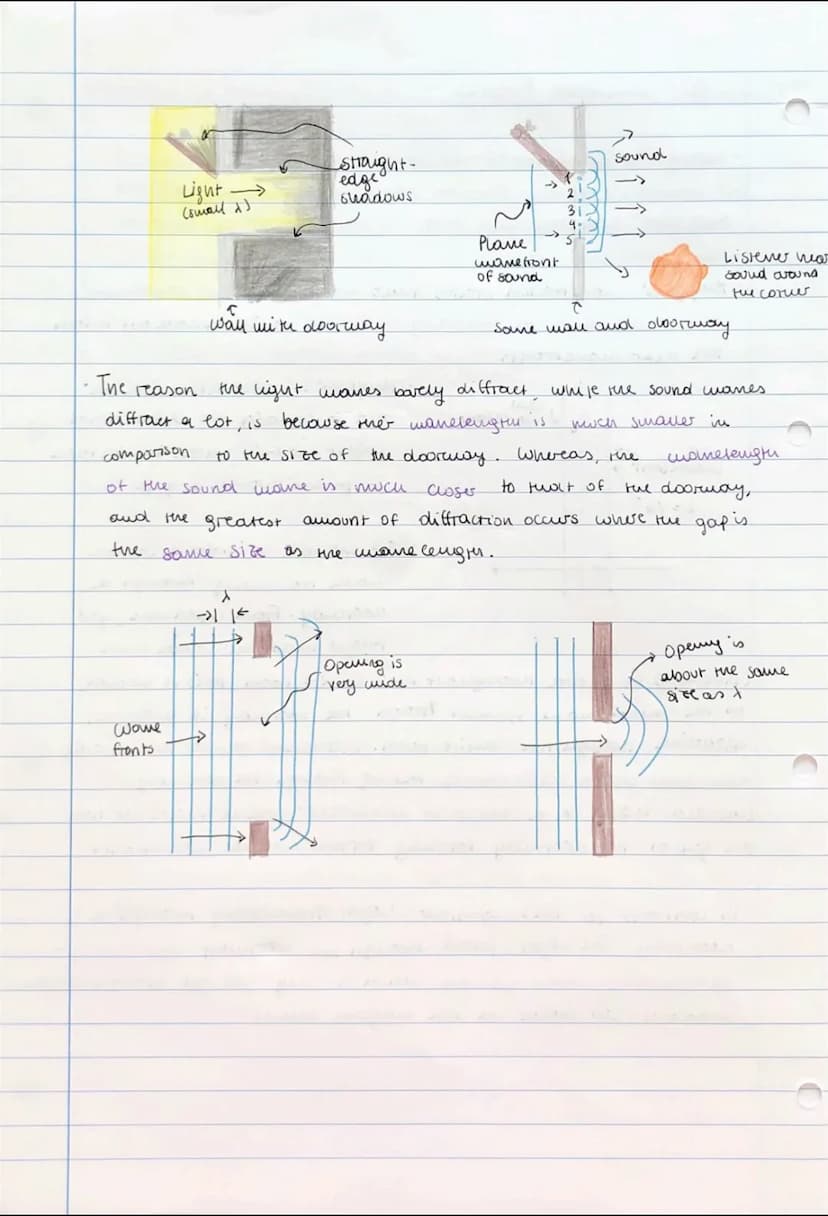 straight-
edge
shadows
Light →
(small λ)
Wall with doorway
sound
1
2
3
4
5
Plane
wavefront
of sound
Listener hear
sound around
the corner
Same wall and doorway
· The reason the light waves barely diffract, while the sound waves
diffract a lot, is because their wavelength is much smaller in
comparison to the size of the doorway. Whereas, the wavelength
of the sound wave is much closer to that of the doorway,
and the greatest amount of diffraction occurs where the gap is
the same size as the wavelength.
λ
Opening is
very wide
Wave
fronts
Opening is
about the same
size as λ